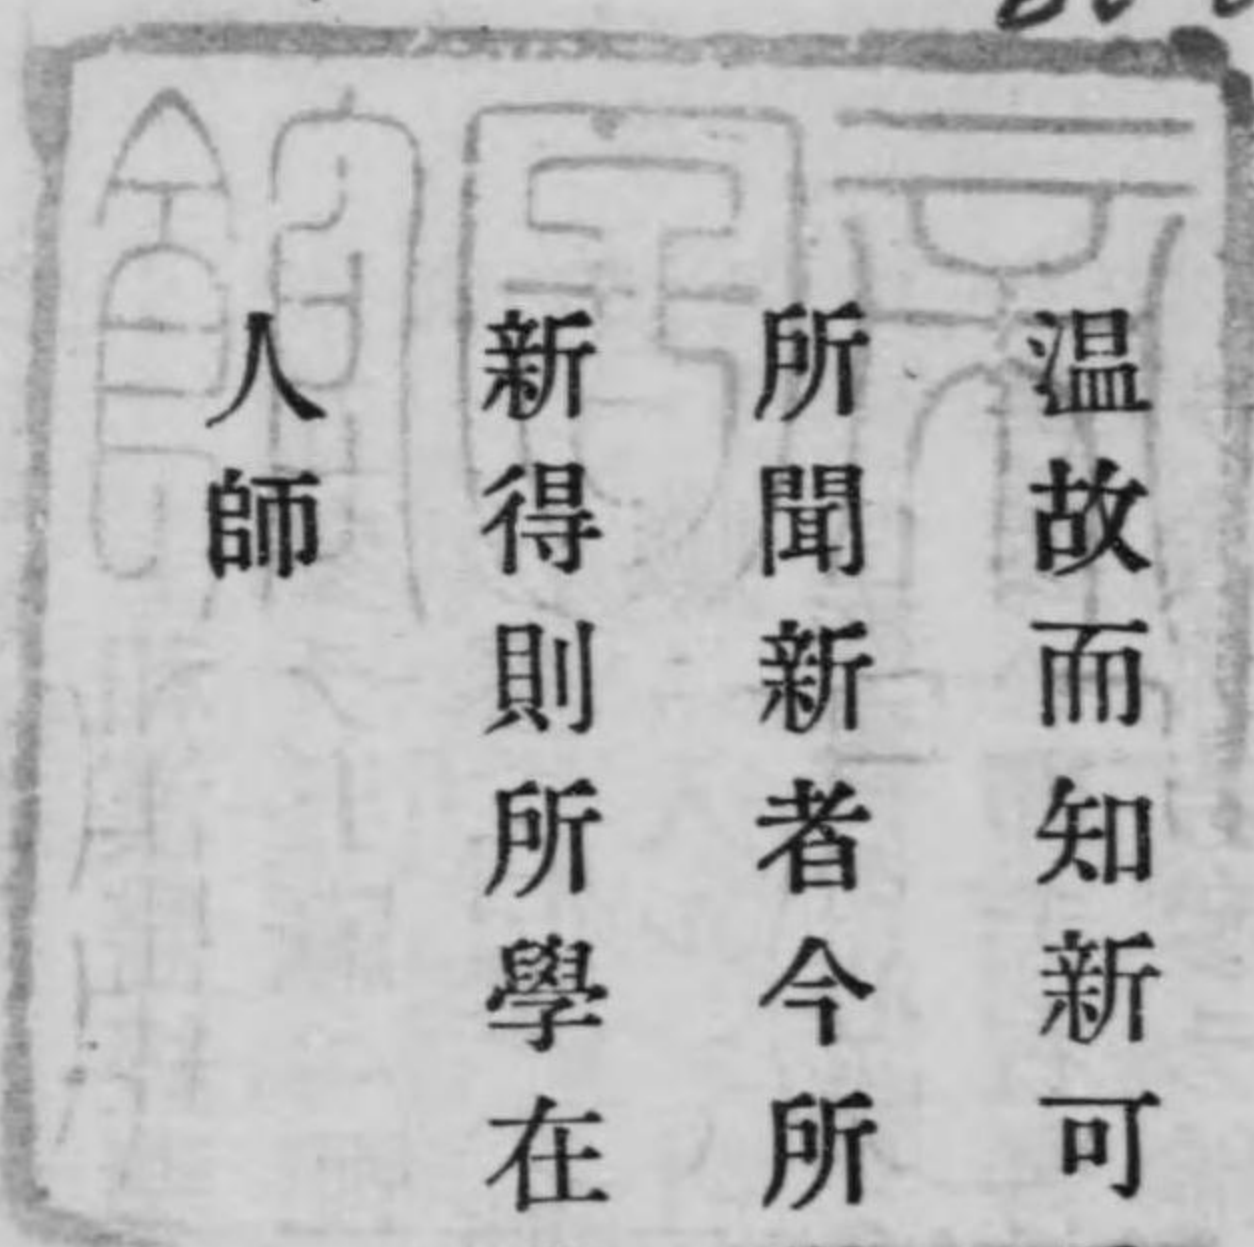 温故而知新可
所聞新者今所
新得則所學在
人師